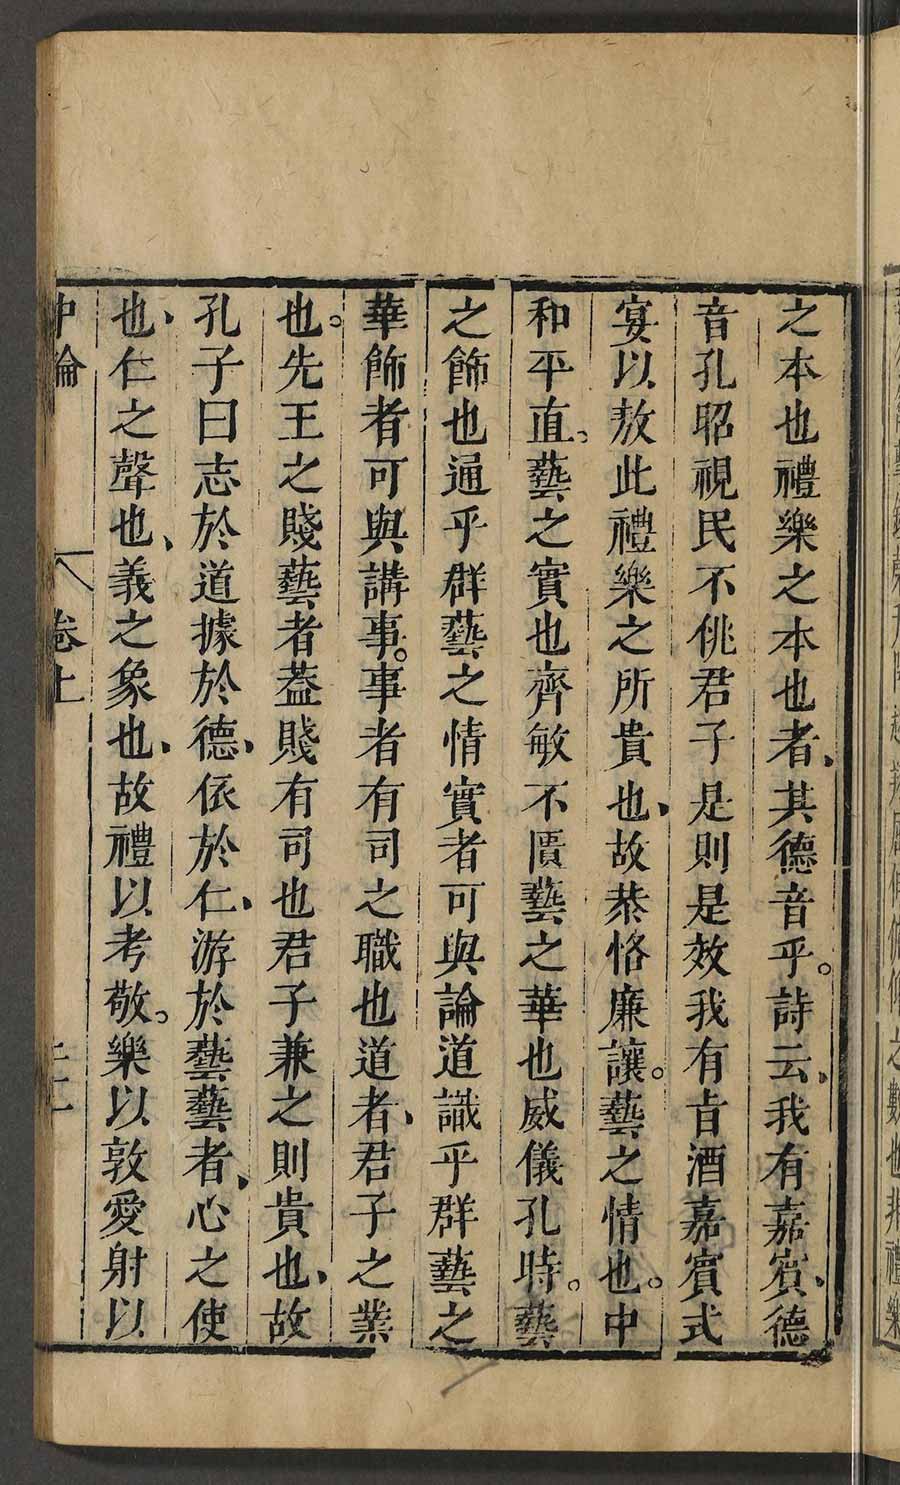 之本也禮樂之本也者、其德音乎。詩云、我有嘉賓、德
音孔昭視民不佻君子是則是效我有旨酒嘉賓式
宴以敖此禮樂之所貴也、故恭恪廉讓。藝之情也。中
和平直、藝之實也齊敏不匱藝之華也威儀孔時。藝
之飾也通乎群藝之情實者可與論道識乎群藝之
華飾者可與講事。事者有司之職也道者、君子之業
也。先王之賤藝者葢賤有司也君子兼之則貴也、故
孔子曰志於道據於德、依於仁、游於藝藝者、心之使
也、仁之聲也、義之象也、故禮以考敬。樂以敦愛射以
中論 卷上